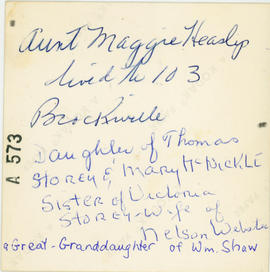 Aunt Maggie Heaslip
lived to 103
Brockville
Daughter of Thomas
STOREY & MARY McNICKLE
Sister of Victoria
STOREY-Wife of
Nelson Webster
a Great-Granddaughter of Wm. Shaw
A 573